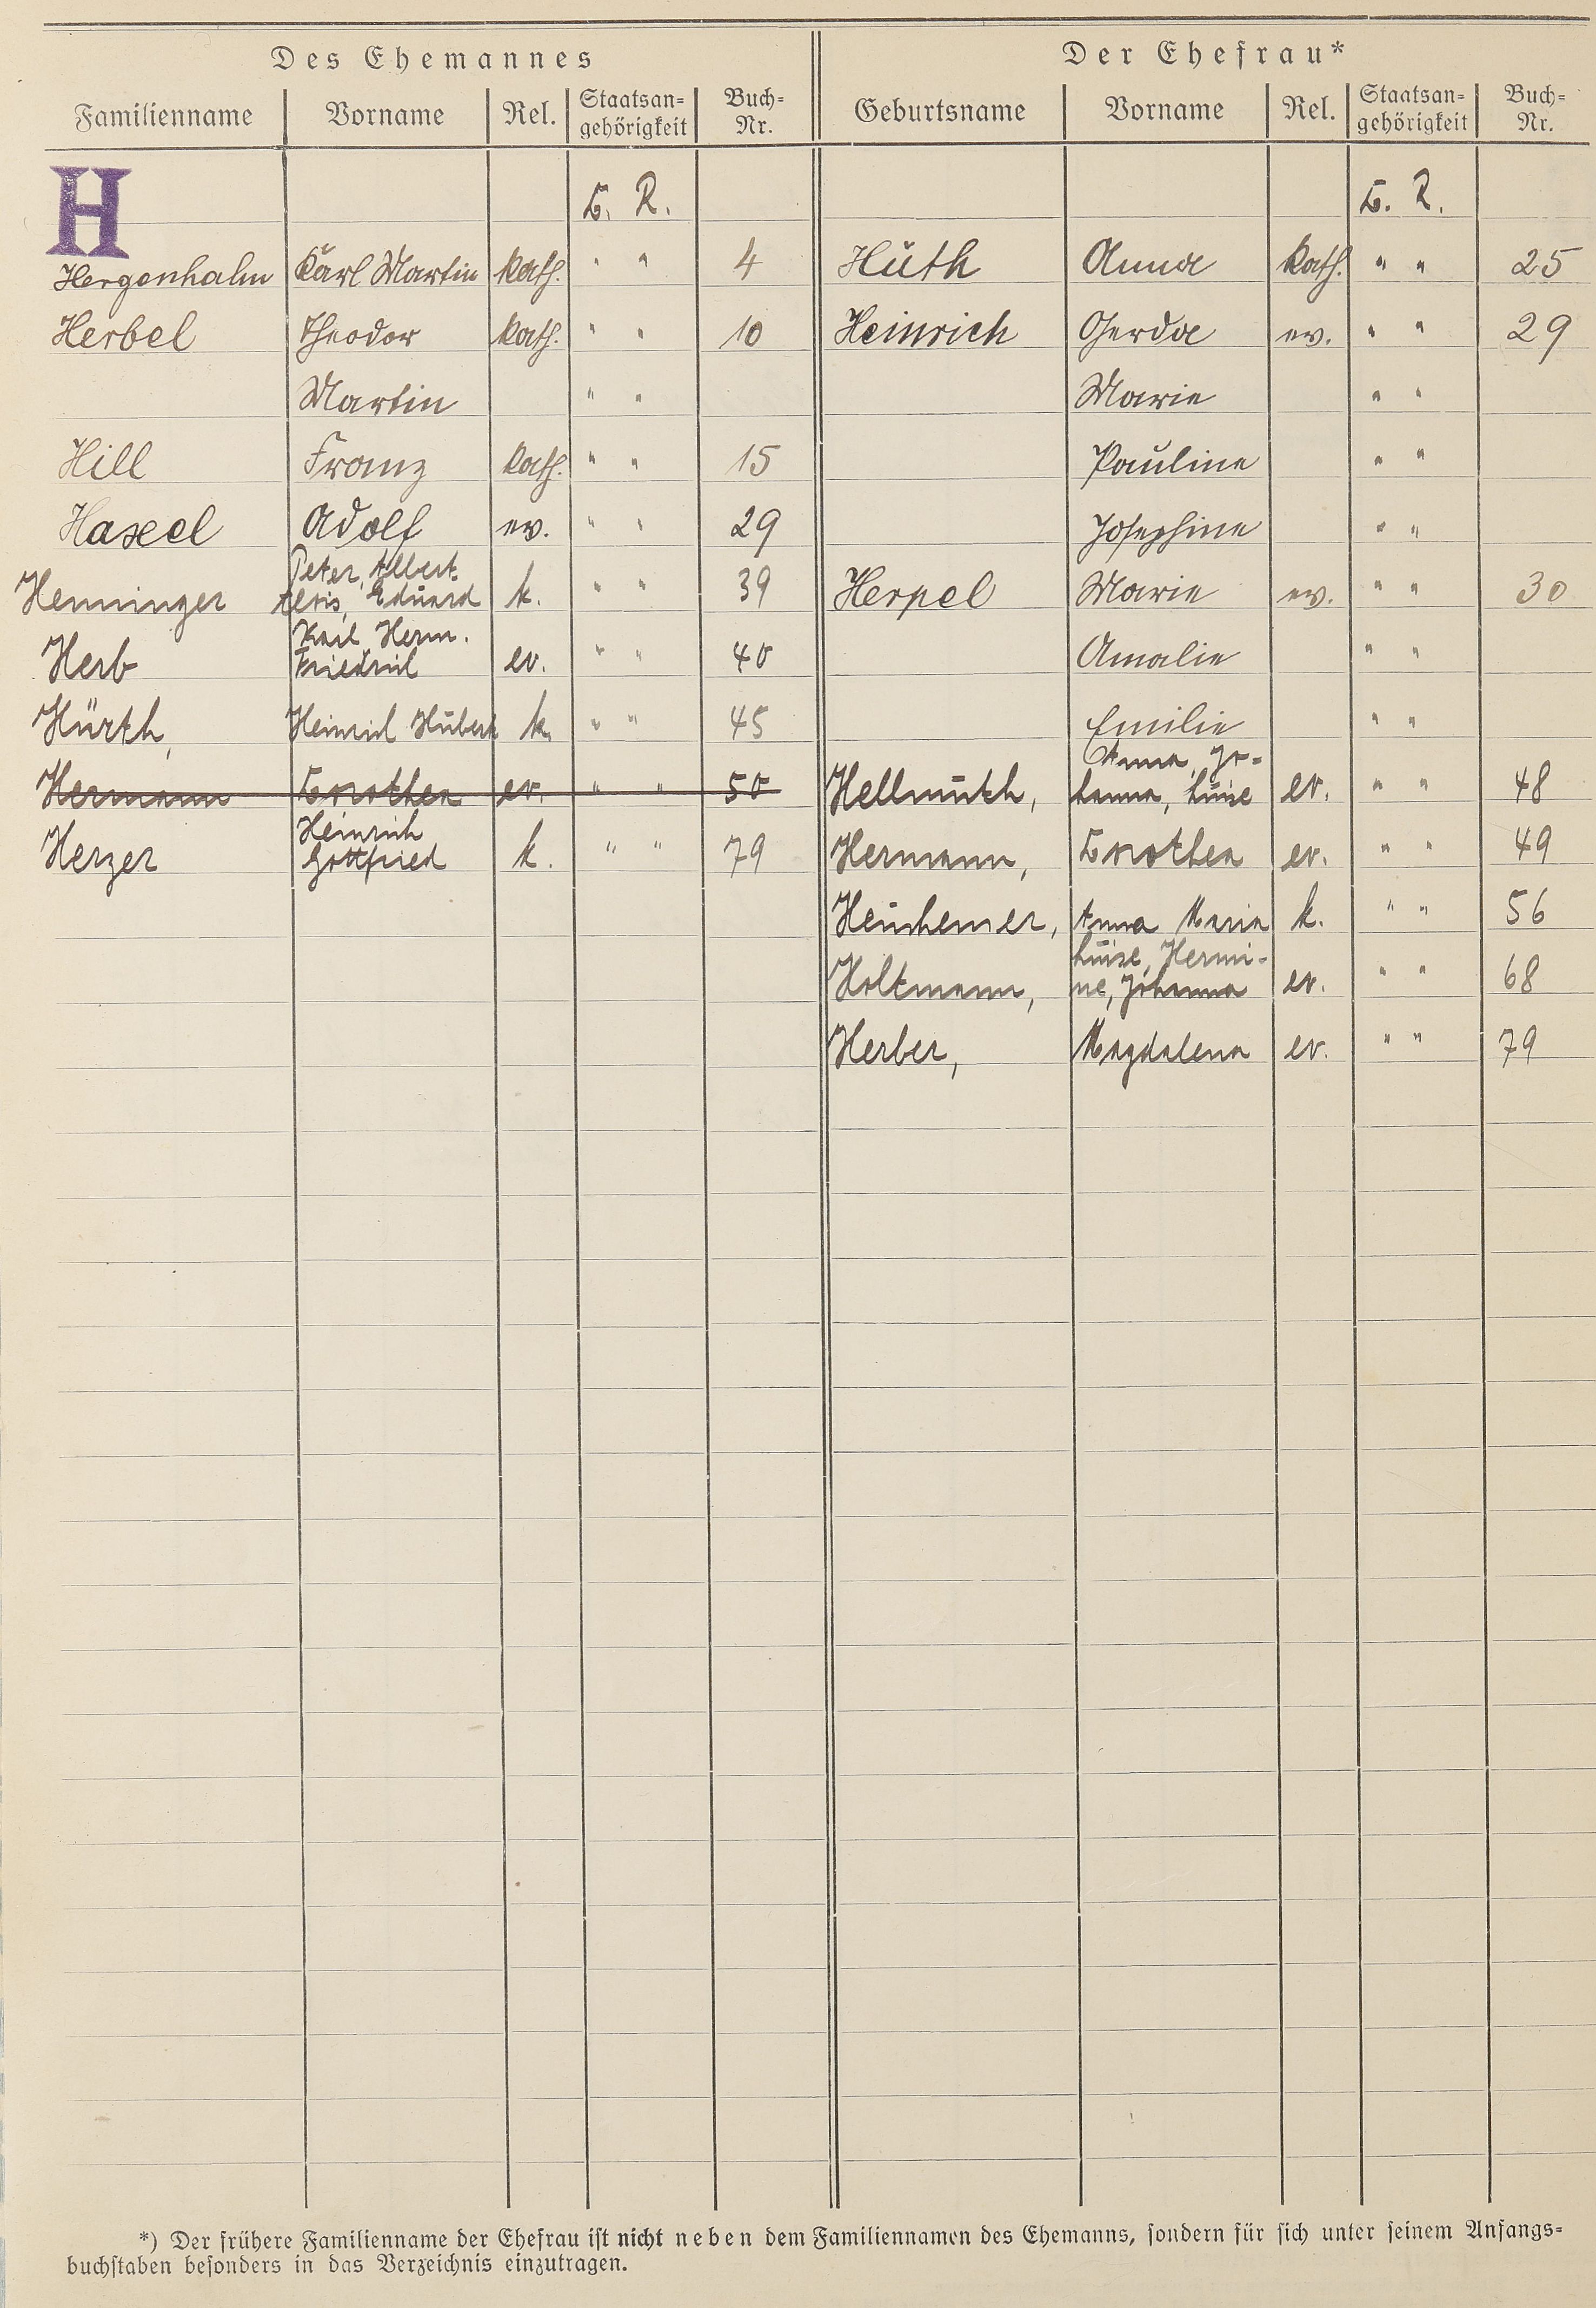 Des Ehemannes Der Ehefrau*
Familienname Vorname Rel. Staatsan- Buch- Geburtsname Vorname Rel. Staatsan- Buch-
gehörigkeit Nr. gehörigkeit Nr.
H
D. R. D. R.
Hergenhahn Karl Martin kath. " " 4 Huth Anna kath. " " 25
Herbel Theodor kath. " " 10 Heinrich Gerda ev. " " 29
Martin " " Marie " "
Hill Franz kath. " " 15 Pauline " "
Hassel Adolf ev. " " 29 Josephine " "
Peter, Albert
Henninger Alois, Eduard k. " " 39 Herpel Marie ev. " " 30
Karl Herm.
Herb Friedrich ev. " " 40 Amalie " "
Hürth, Heinrich Hubert k. " " 45 Emilie " "
Anna, Jo-
Hermann Dorothea ev. " " 50 Hellmuth, hanna, Luise ev. " " 48
Heinrich
Herzer Gottfried k. " " 79 Hermann, Dorothea ev. " " 49
Heinhemer, Anna Maria k. " " 56
Luise, Hermi-
Holtmann, ne, Johanna ev. " " 68
Herber, Magdalena ev. " " 79
*) Der frühere Familienname der Ehefrau ist nicht neben dem Familiennamen des Ehemanns, sondern für sich unter seinem Anfangs-
buchstaben besonders in das Verzeichnis einzutragen.